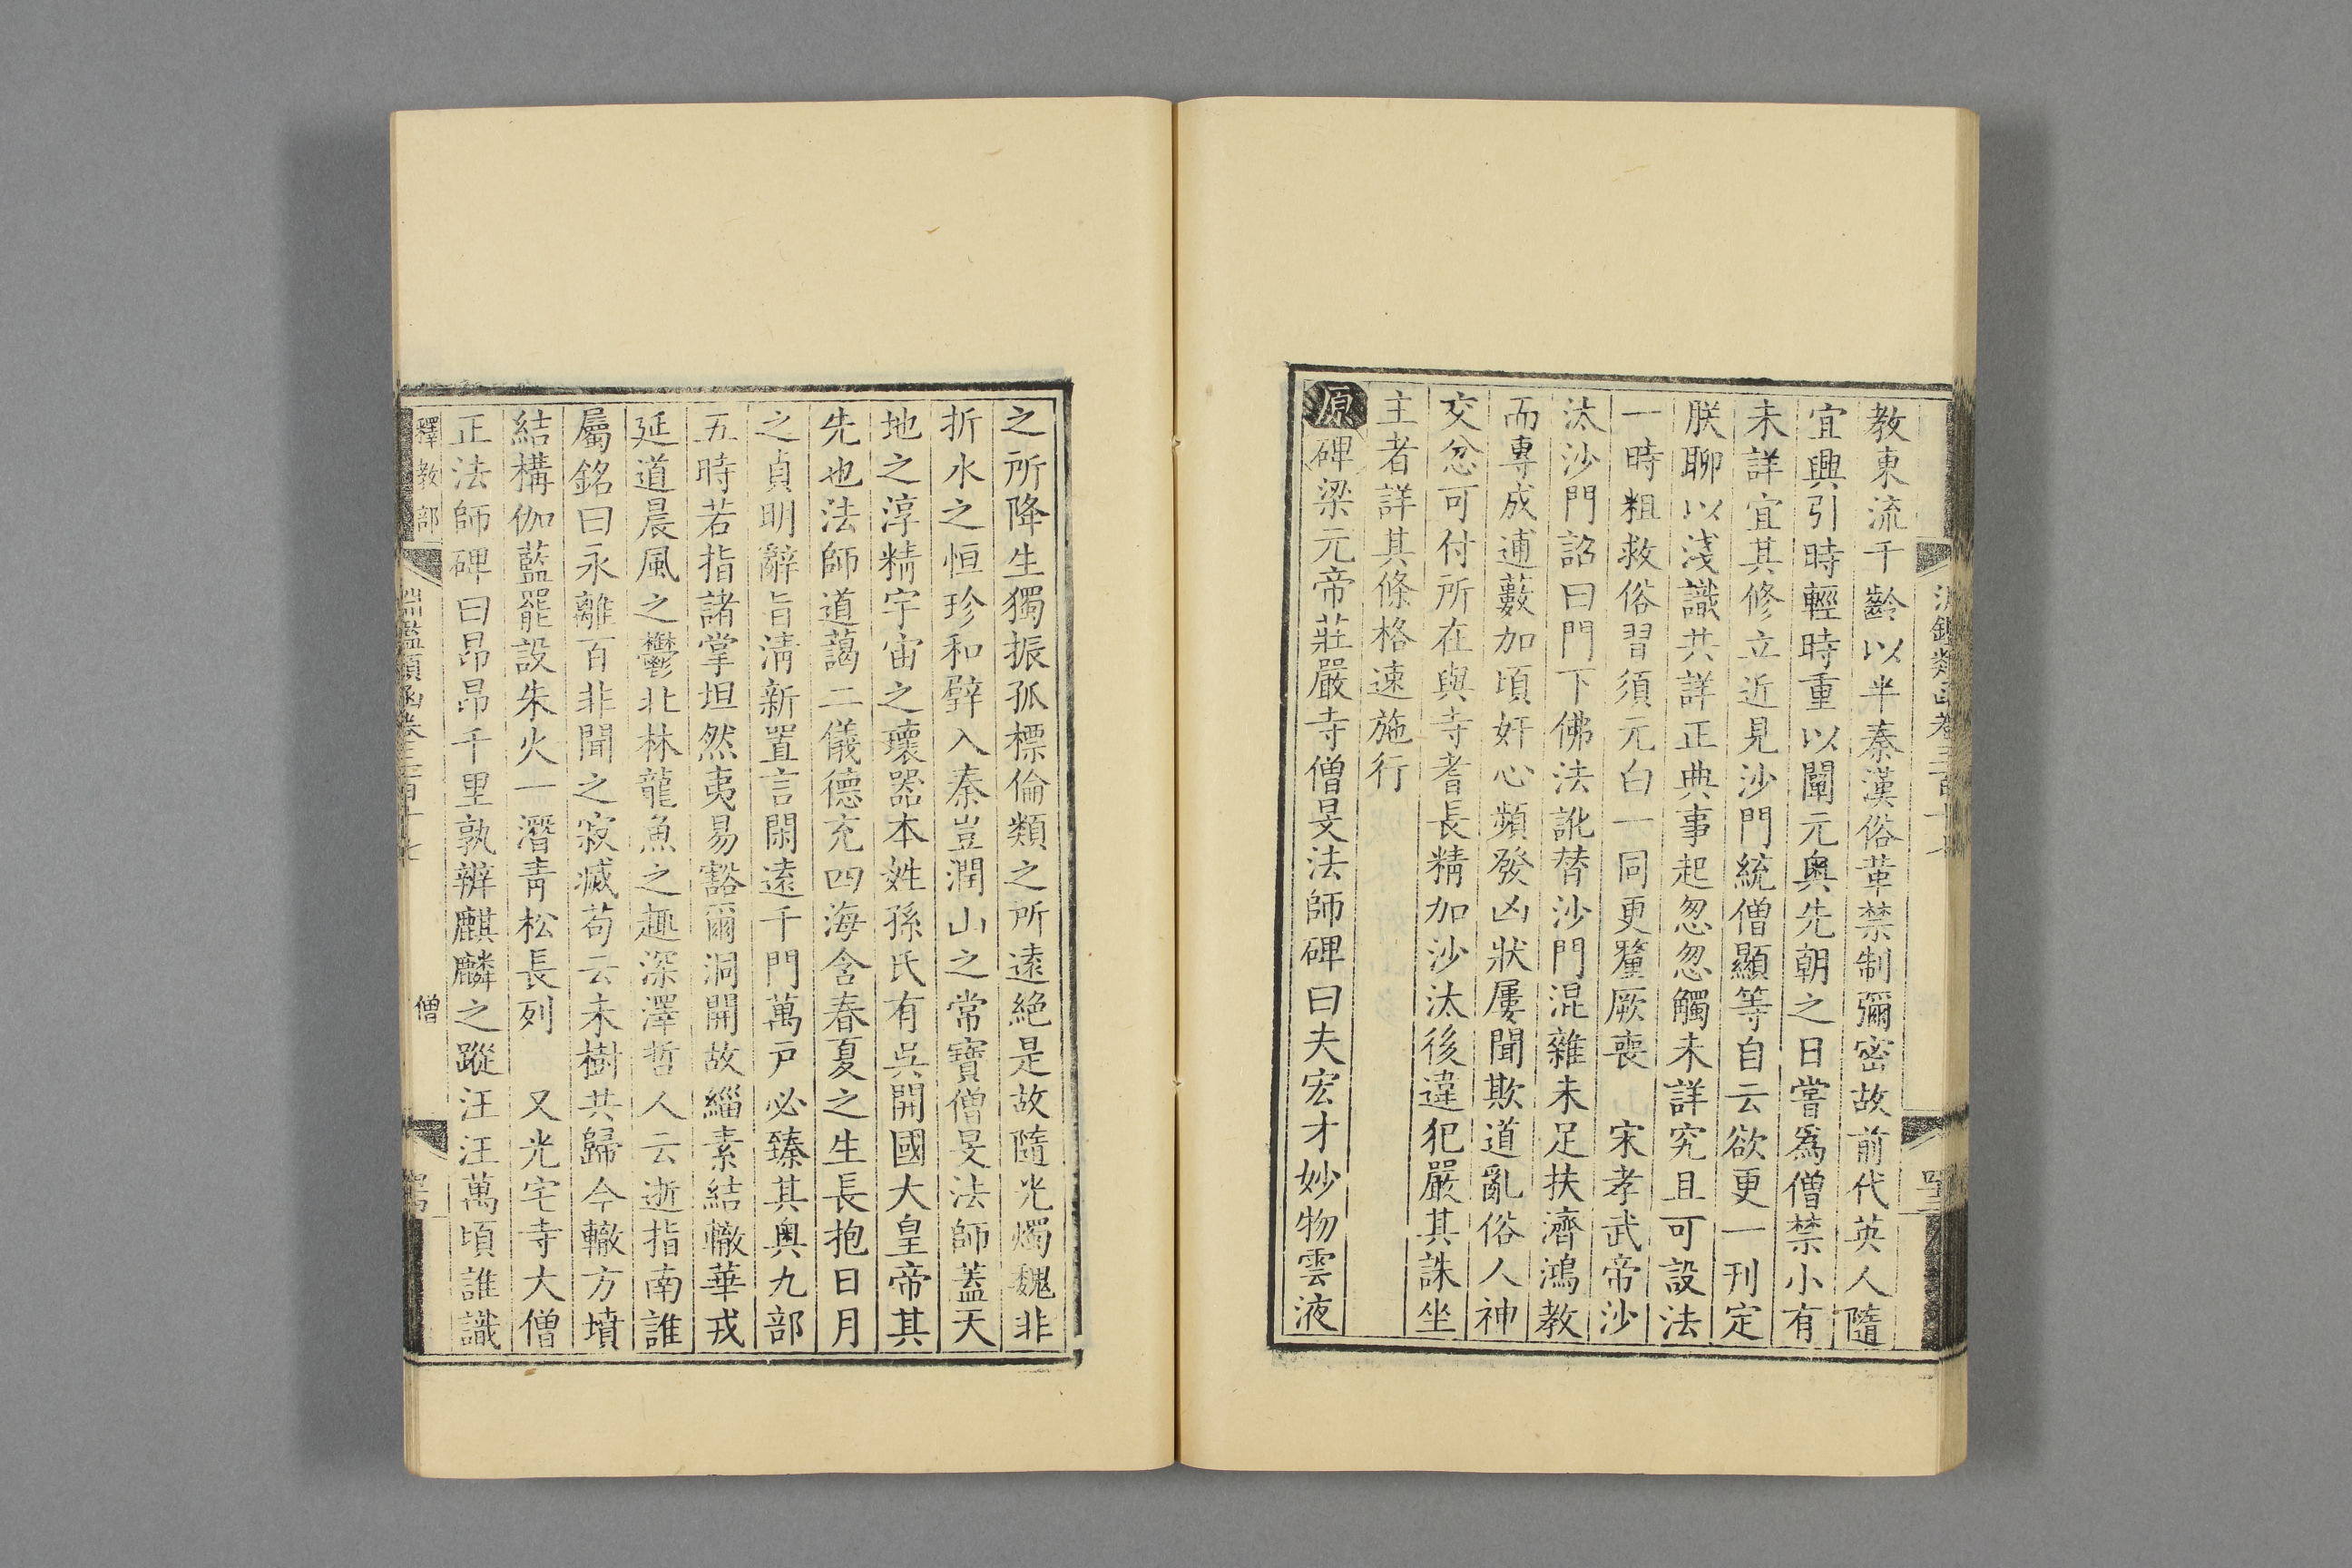 教東流千齡以半秦漢俗革禁制彌密故前代英人隨
宜興引時輕時重以闡元奥先朝之日嘗爲僧禁小有
未詳宜其修立近見沙門統僧顯等自云欲更一刊定
朕聊以淺識共詳正典事起忽忽觸未詳究且可設法
一時粗救俗習須元白一同更釐厥衷 宋孝武帝沙
汰沙門詔曰門下佛法訛替沙門混雜未足扶濟鴻教
而專成逋藪加頃奸心頻發凶狀屢聞欺道亂俗人神
交忿可付所在與寺耆長精加沙汰後違犯嚴其誅坐
主者詳其條格速施行
原碑梁元帝莊嚴寺僧旻法師碑曰夫宏才妙物雲液
之所降生獨振孤標倫類之所遠絕是故隨光燭魏非
折水之恒珍和璧入秦豈潤山之常寶僧旻法師蓋天
地之淳精宇宙之瓌器本姓孫氏有吳開國大皇帝其
先也法師道藹二儀德充四海含春夏之生長抱日月
之貞明辭旨清新置言閑遠千門萬戸必臻其奥九部
五時若指諸掌坦然夷易豁爾洞開故緇素結轍華戎
延道晨風之鬱北林龍魚之趣深澤哲人云逝指南誰
屬銘曰永離百非聞之寂滅苟云未樹共歸今轍方墳
結構伽藍罷設朱火一潛青松長列 又光宅寺大僧
正法師碑曰昂昂千里孰辨麒麟之蹤汪汪萬頃誰識
釋教部 淵鑑類函卷三百十七 僧